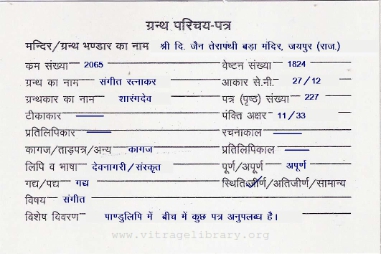 ग्रन्थ परिचय-पत्र
मन्दिर/ग्रन्थ भण्डार का नाम श्री दि. जैन तेरापंथी बड़ा मंदिर, जयपुर (राज.)
क्रम संख्या 2065 वेष्टन संख्या 1824
ग्रन्थ का नाम संगीत रत्नाकर आकार से.मी. 27/12
ग्रन्थकार का नाम शारंगदेव पत्र (पृष्ठ) संख्या 227
टीकाकार — पंक्ति अक्षर 11/33
प्रतिलिपिकार — रचनाकाल —
कागज/ताड़पत्र/अन्य कागज प्रतिलिपिकाल —
लिपि व भाषा देवनागरी/संस्कृत पूर्ण/अपूर्ण अपूर्ण
गद्य/पद्य गद्य स्थिति जीर्ण/अतिजीर्ण/सामान्य
विषय संगीत
विशेष विवरण पाण्डुलिपि में बीच में कुछ पत्र अनुपलब्ध है।
www.vitragelibrary.org